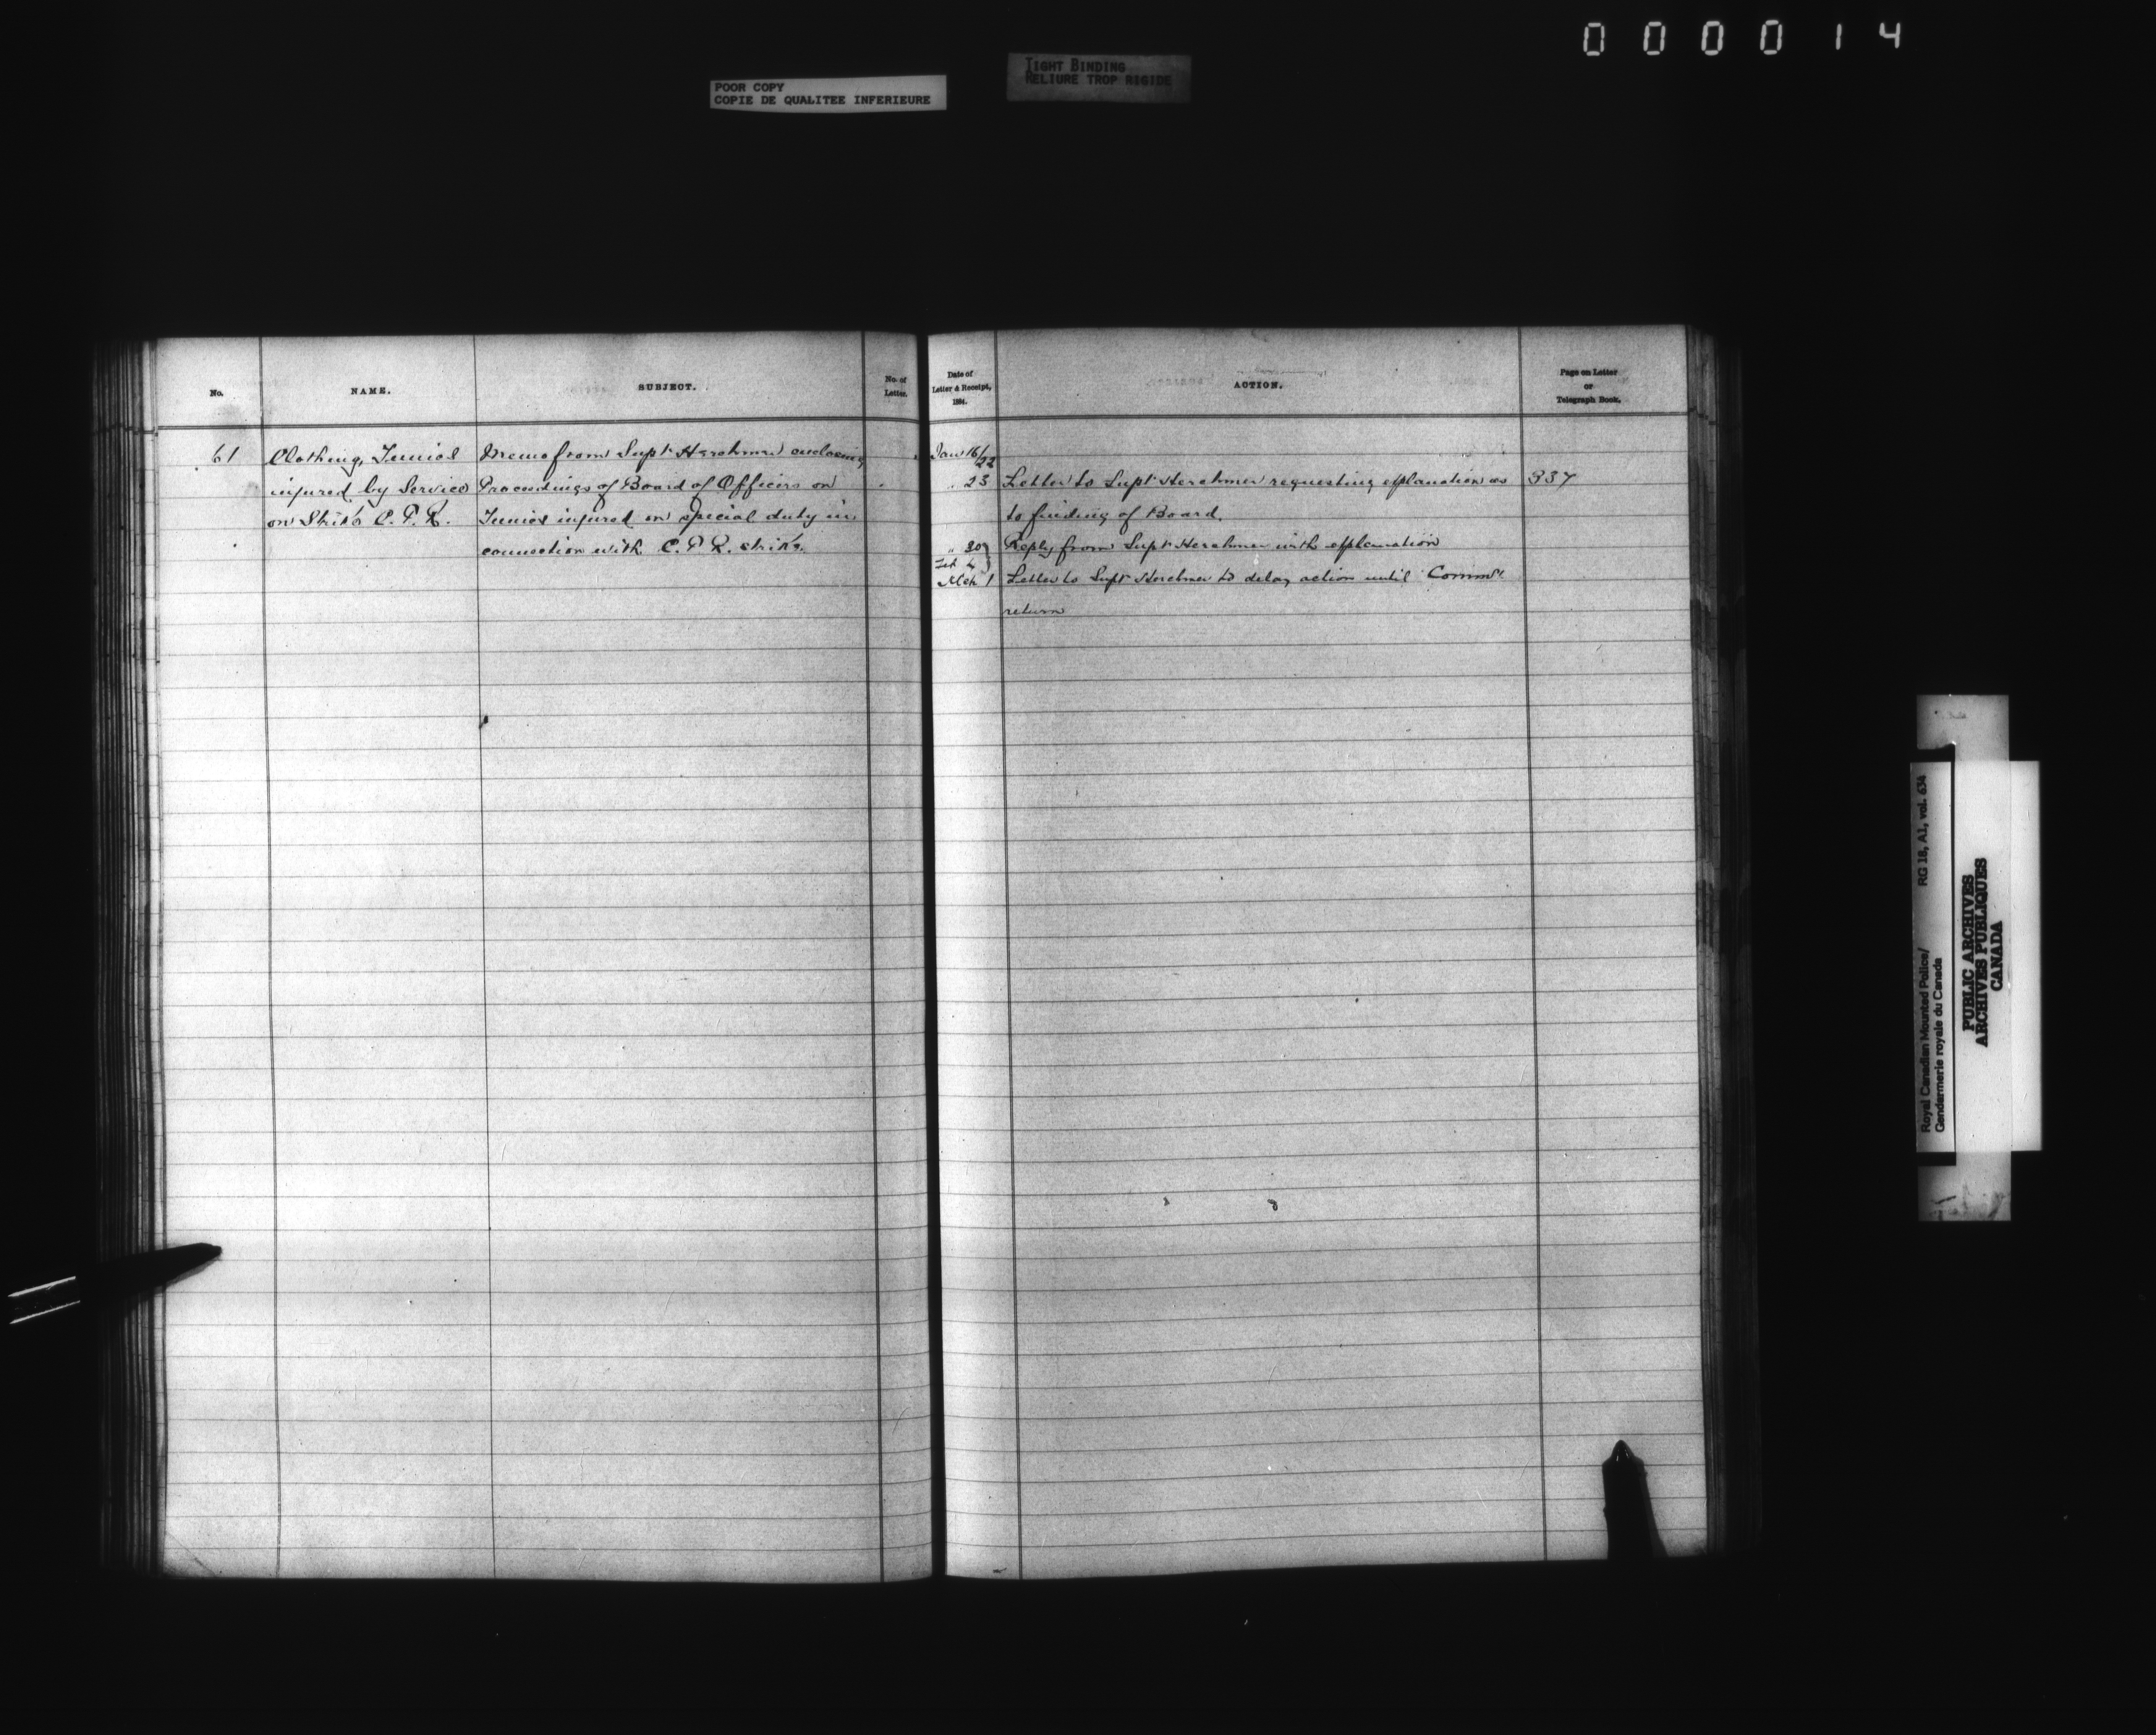 0 0 0 0 1 4
POOR COPY
COPIE DE QUALITEE INFERIEURE
TIGHT BINDING
RELIURE TROP RIGIDE
No.
NAME.
SUBJECT.
No. of
Letter.
Date of
Letter & Receipt,
1884.
ACTION.
Page on Letter
or
Telegraph Book.
61
Clothing, Tunics
injured by Service
on Strike C. P. R.
Memo from Supt Herchmer enclosing
Proceedings of Board of Officers on
Tunics injured on special duty in
connection with C. P. R. strike.
Jan 16/22
" 23 Letter to Supt Herchmer requesting explanation as 337
to finding of Board.
" 30 Reply from Supt Herchmer with explanation
Feb
Mch 1 Letter to Supt Herchmer to delay action until Commrs
return
Royal Canadian Mounted Police/ RG 18, A1, vol. 634
Gendarmerie royale du Canada
PUBLIC ARCHIVES
ARCHIVES PUBLIQUES
CANADA